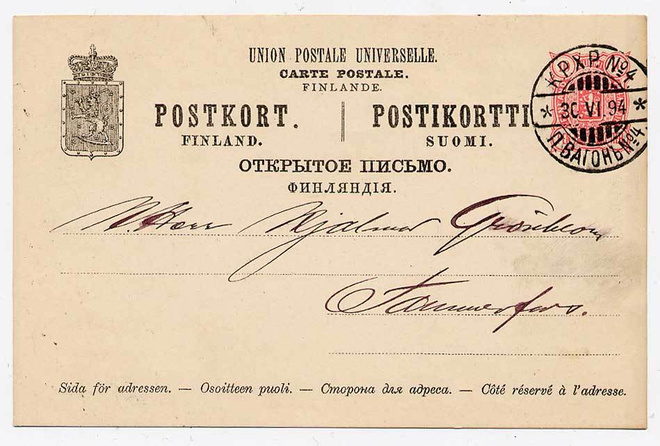 UNION POSTALE UNIVERSELLE.
CARTE POSTALE.
FINLANDE.
POSTKORT. POSTIKORTTI
FINLAND. SUOMI.
ОТКРЫТОЕ ПИСЬМО.
ФИНЛЯНДІЯ.
К.Р.Х.Р. №4
* 30.VI.94 *
П.ВАГОНЪ №4.
Herr Hjalmar Grönblom
Tammerfors.
Sida för adressen. — Osoitteen puoli. — Сторона для адреса. — Côté réservé à l'adresse.